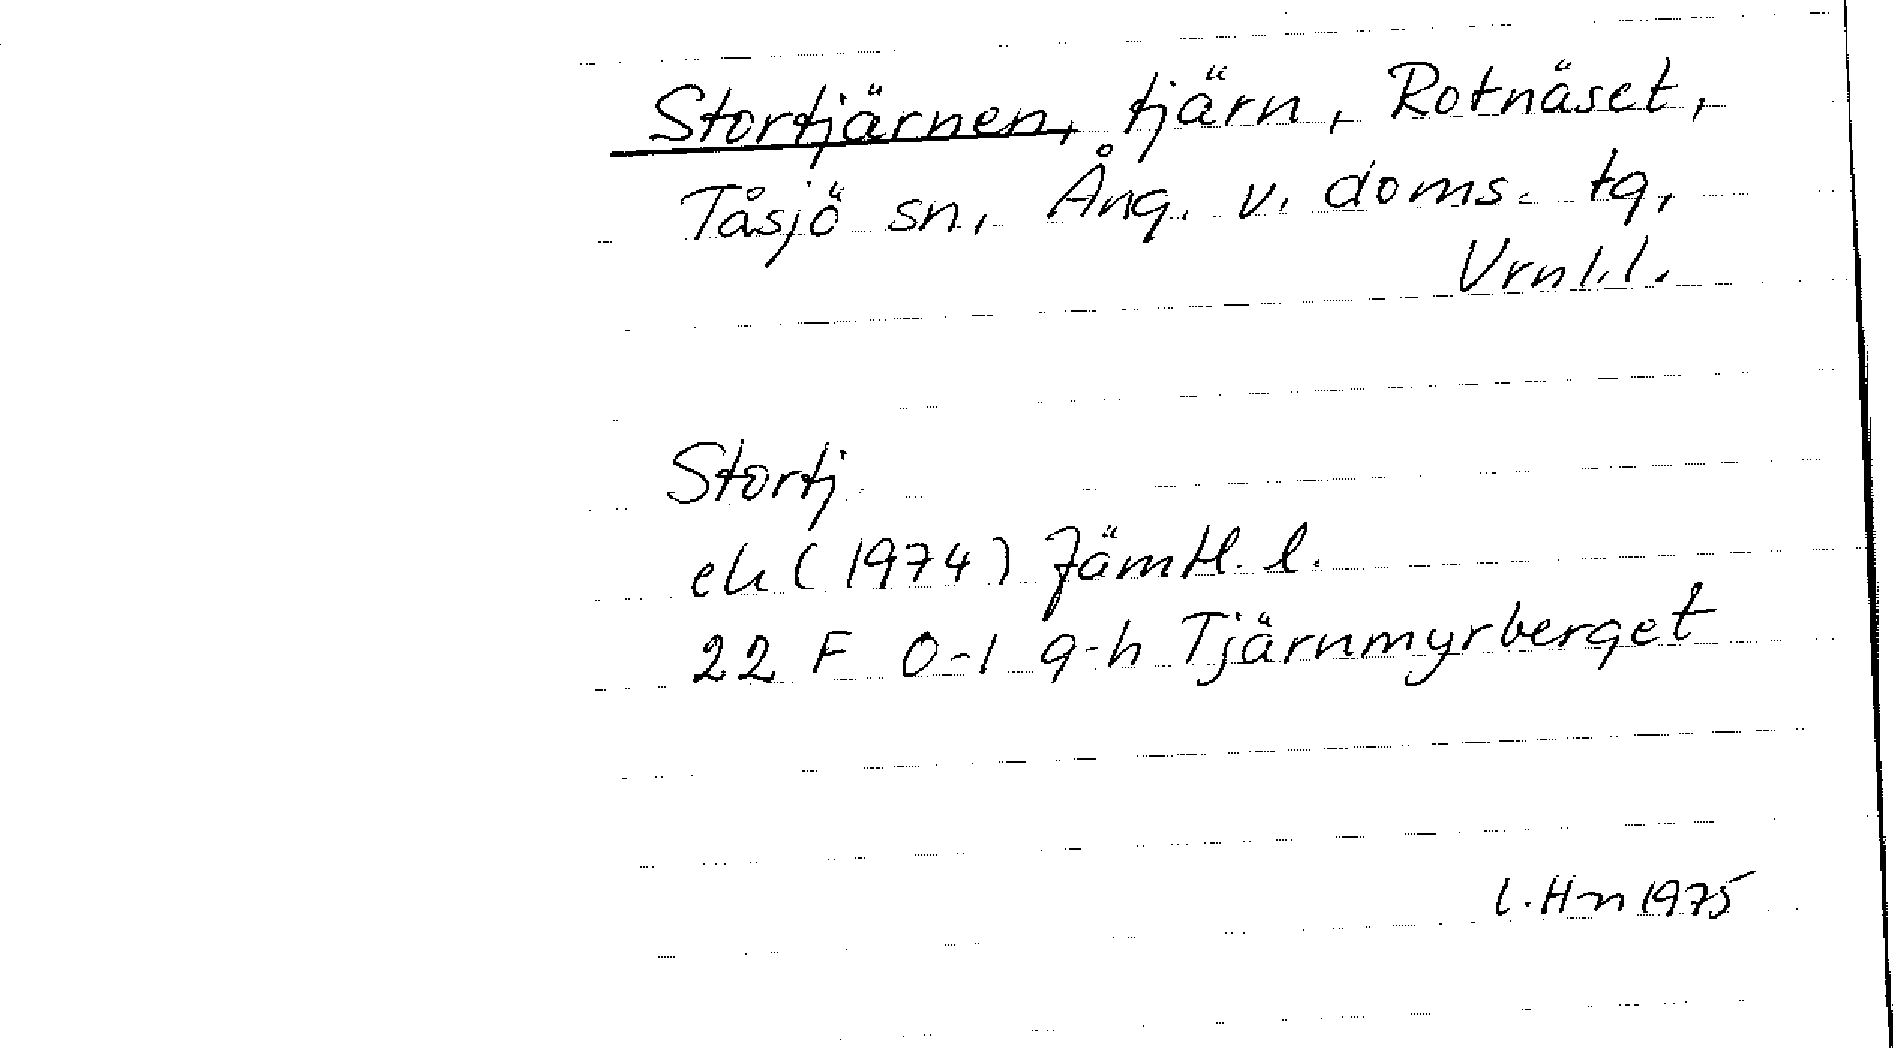 Stortjärnen, tjärn, Rotnäset,
Tåsjö sn, Ång. v. doms. tg,
Vrnl.l.
Stortj
ek (1974) Jämtl. l.
22 F 0-1 g-h Tjärnmyrberget
l. Hn 1975